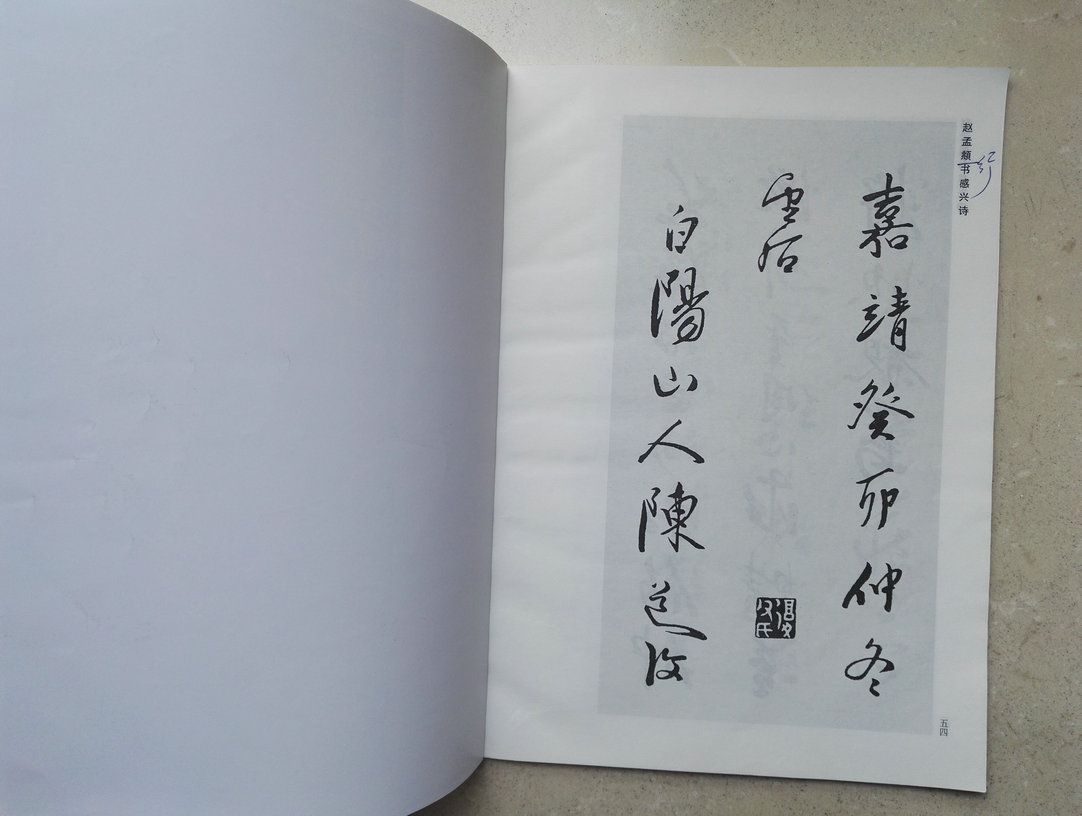 赵孟頫书感兴诗
嘉靖癸卯仲冬
白陽山人陳道復
五四